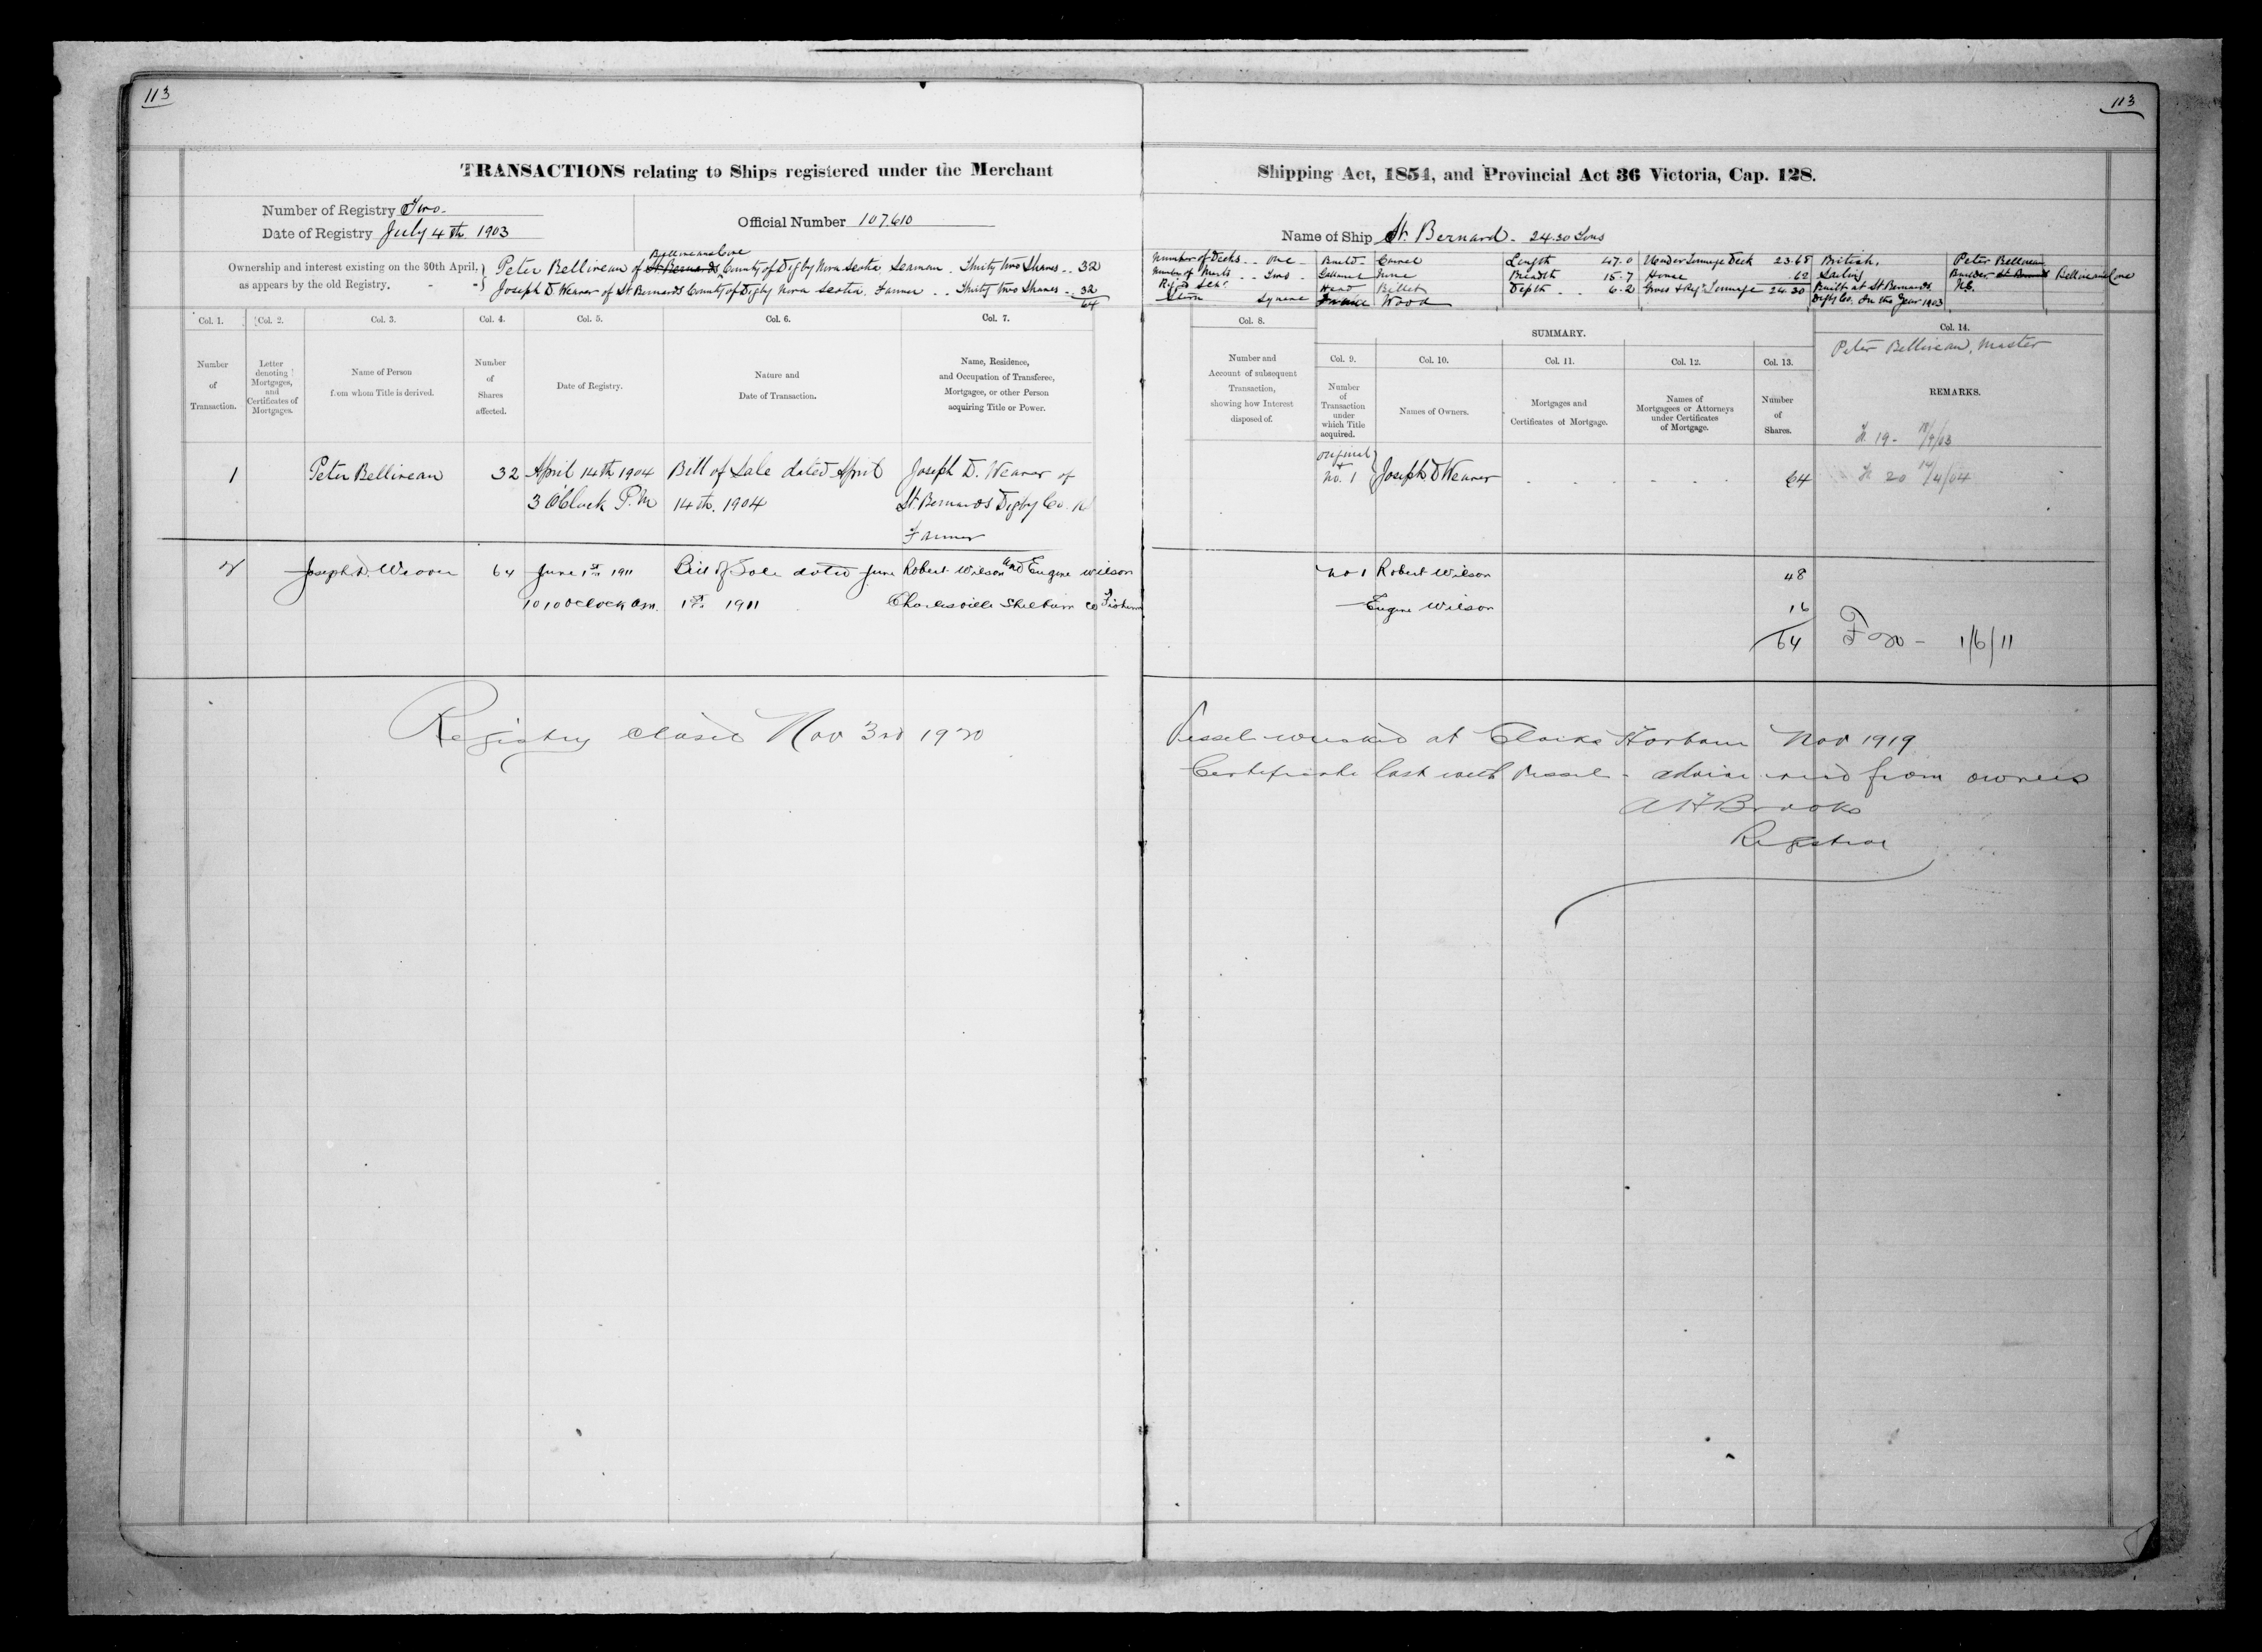 113
113
TRANSACTIONS relating to Ships registered under the Merchant
Shipping Act, 1854, and Provincial Act 36 Victoria, Cap. 128.
Number of Registry Two.
Date of Registry July 4th 1903
Official Number 107610
Name of Ship St. Bernard - 24.30 Tons
Belliveaus Cove
Ownership and interest existing on the 30th April, as appears by the old Registry,
Peter Belliveau of St Bernards County of Digby Nova Scotia Seaman . Thirty two Shares .. 32
Joseph D. Weaver of St Bernards County of Digby Nova Scotia. Farmer .. Thirty two Shares .. 32
64
Number of Decks .. One - Build - Carvel Length 47.0 Under Tonnage Deck 23.68 British. Peter Belliveau
Number of Masts .. Two . Gallery None Breadth 15.7 House .62 Sailing Builder St Bernard Belliveaus Cove
Rigged Schr Head Billet Depth .. 6.2 Gross & Reg. Tonnage 24.30 Built at St Bernards N.S.
Stern Square Frame Wood Digby Co. In the Year 1903
Col. 1.
Col. 2.
Col. 3.
Col. 4.
Col. 5.
Col. 6.
Col. 7.
Col. 8.
SUMMARY.
Col. 14.
Peter Belliveau, Master
Number of Transaction.
Letter denoting Mortgages, and Certificates of Mortgages.
Name of Person from whom Title is derived.
Number of Shares affected.
Date of Registry.
Nature and Date of Transaction.
Name, Residence, and Occupation of Transferee, Mortgagee, or other Person acquiring Title or Power.
Number and Account of subsequent Transaction, showing how Interest disposed of.
Col. 9.
Col. 10.
Col. 11.
Col. 12.
Col. 13.
Number of Transaction under which Title acquired.
Names of Owners.
Mortgages and Certificates of Mortgage.
Names of Mortgagees or Attorneys under Certificates of Mortgage.
Number of Shares.
REMARKS.
1 Peter Belliveau 32 April 14th 1904 Bill of Sale dated April Joseph D. Weaver of
3 O'Clock P.M 14th. 1904 St. Bernards Digby Co. NS
Farmer
Original
+
No. 1 Joseph D Weaver 64 20 14/4/04
2 Joseph D. Weaver 64 June 1st 1911 Bill of Sale dated June Robert Wilson and Eugene Wilson
10 10 oclock am. 1st 1911 Charlesville Shelburn Co
No 1 Robert Wilson 48
Eugene Wilson 16
64 1/6/11
Registry closed Nov 3rd 1920
Vessel wrecked at Clarks Harbour Nov 1919
Certificate lost with vessel - advice recd from owners
A H Brooks
Registrar